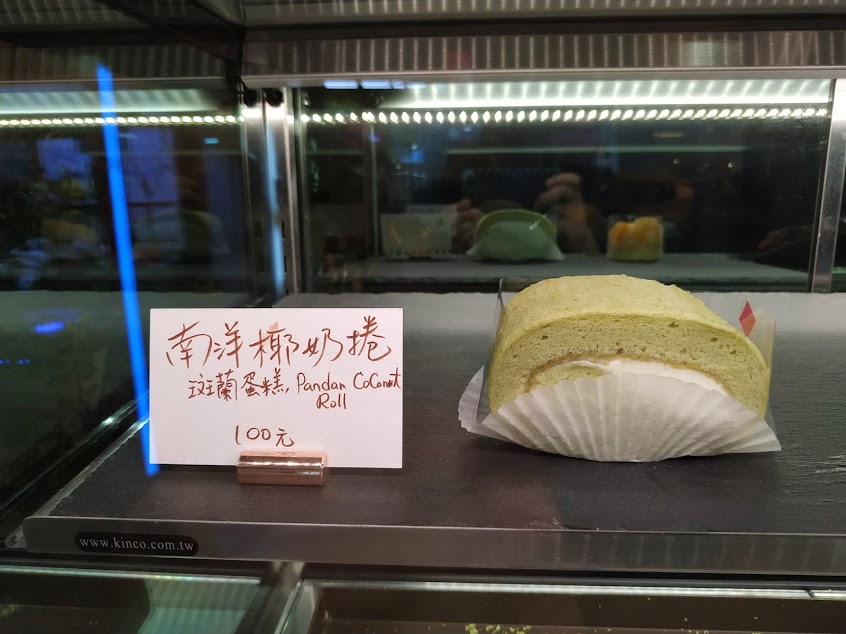 南洋椰奶捲
斑蘭蛋糕, Pandan CoConut
Roll
100元
www.kinco.com.tw